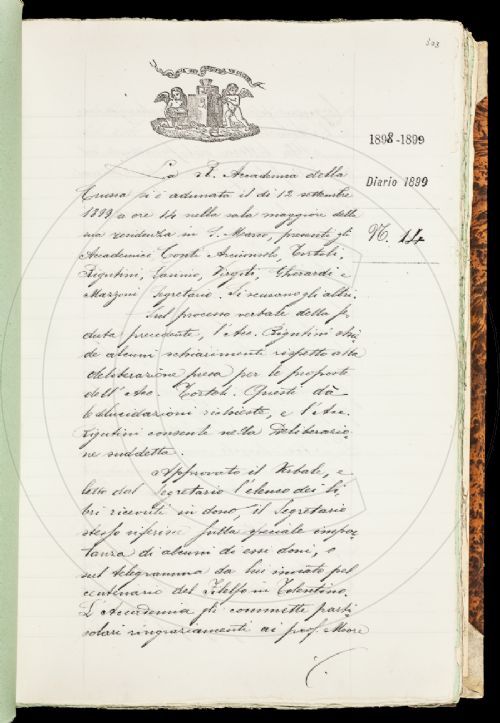 303
1898-1899
Diario 1899
N. 14
La R. Accademia della
Crusca si è adunata il dì 12 settembre
1899 a ore 14 nella sala maggiore della
sua residenza in S. Marco, presenti gli
Accademici Conti Arciconsolo, Tortoli,
Rigutini, Vannio, Virgilj, Gherardi e
Mazzoni Segretario. Si scusano gli altri.
Sul processo verbale della se
duta precedente, l'Acc. Rigutini chie
de alcuni schiarimenti rispetto alla
deliberazione presa per le proposte
dell'Acc. Tortoli. Questi dà
le delucidazioni richieste, e l'Acc.
Rigutini consente nella deliberazio
ne suddetta.
Approvato il Verbale, e
letto dal Segretario l'elenco dei li
bri ricevuti in dono, il Segretario
stesso riferisce sulla speciale impor
tanza di alcuni di essi doni, e
sul telegramma da lui inviato pel
centenario del Filelfo in Tolentino.
L'Accademia gli commette parti
colari ringraziamenti ai prof. Moore